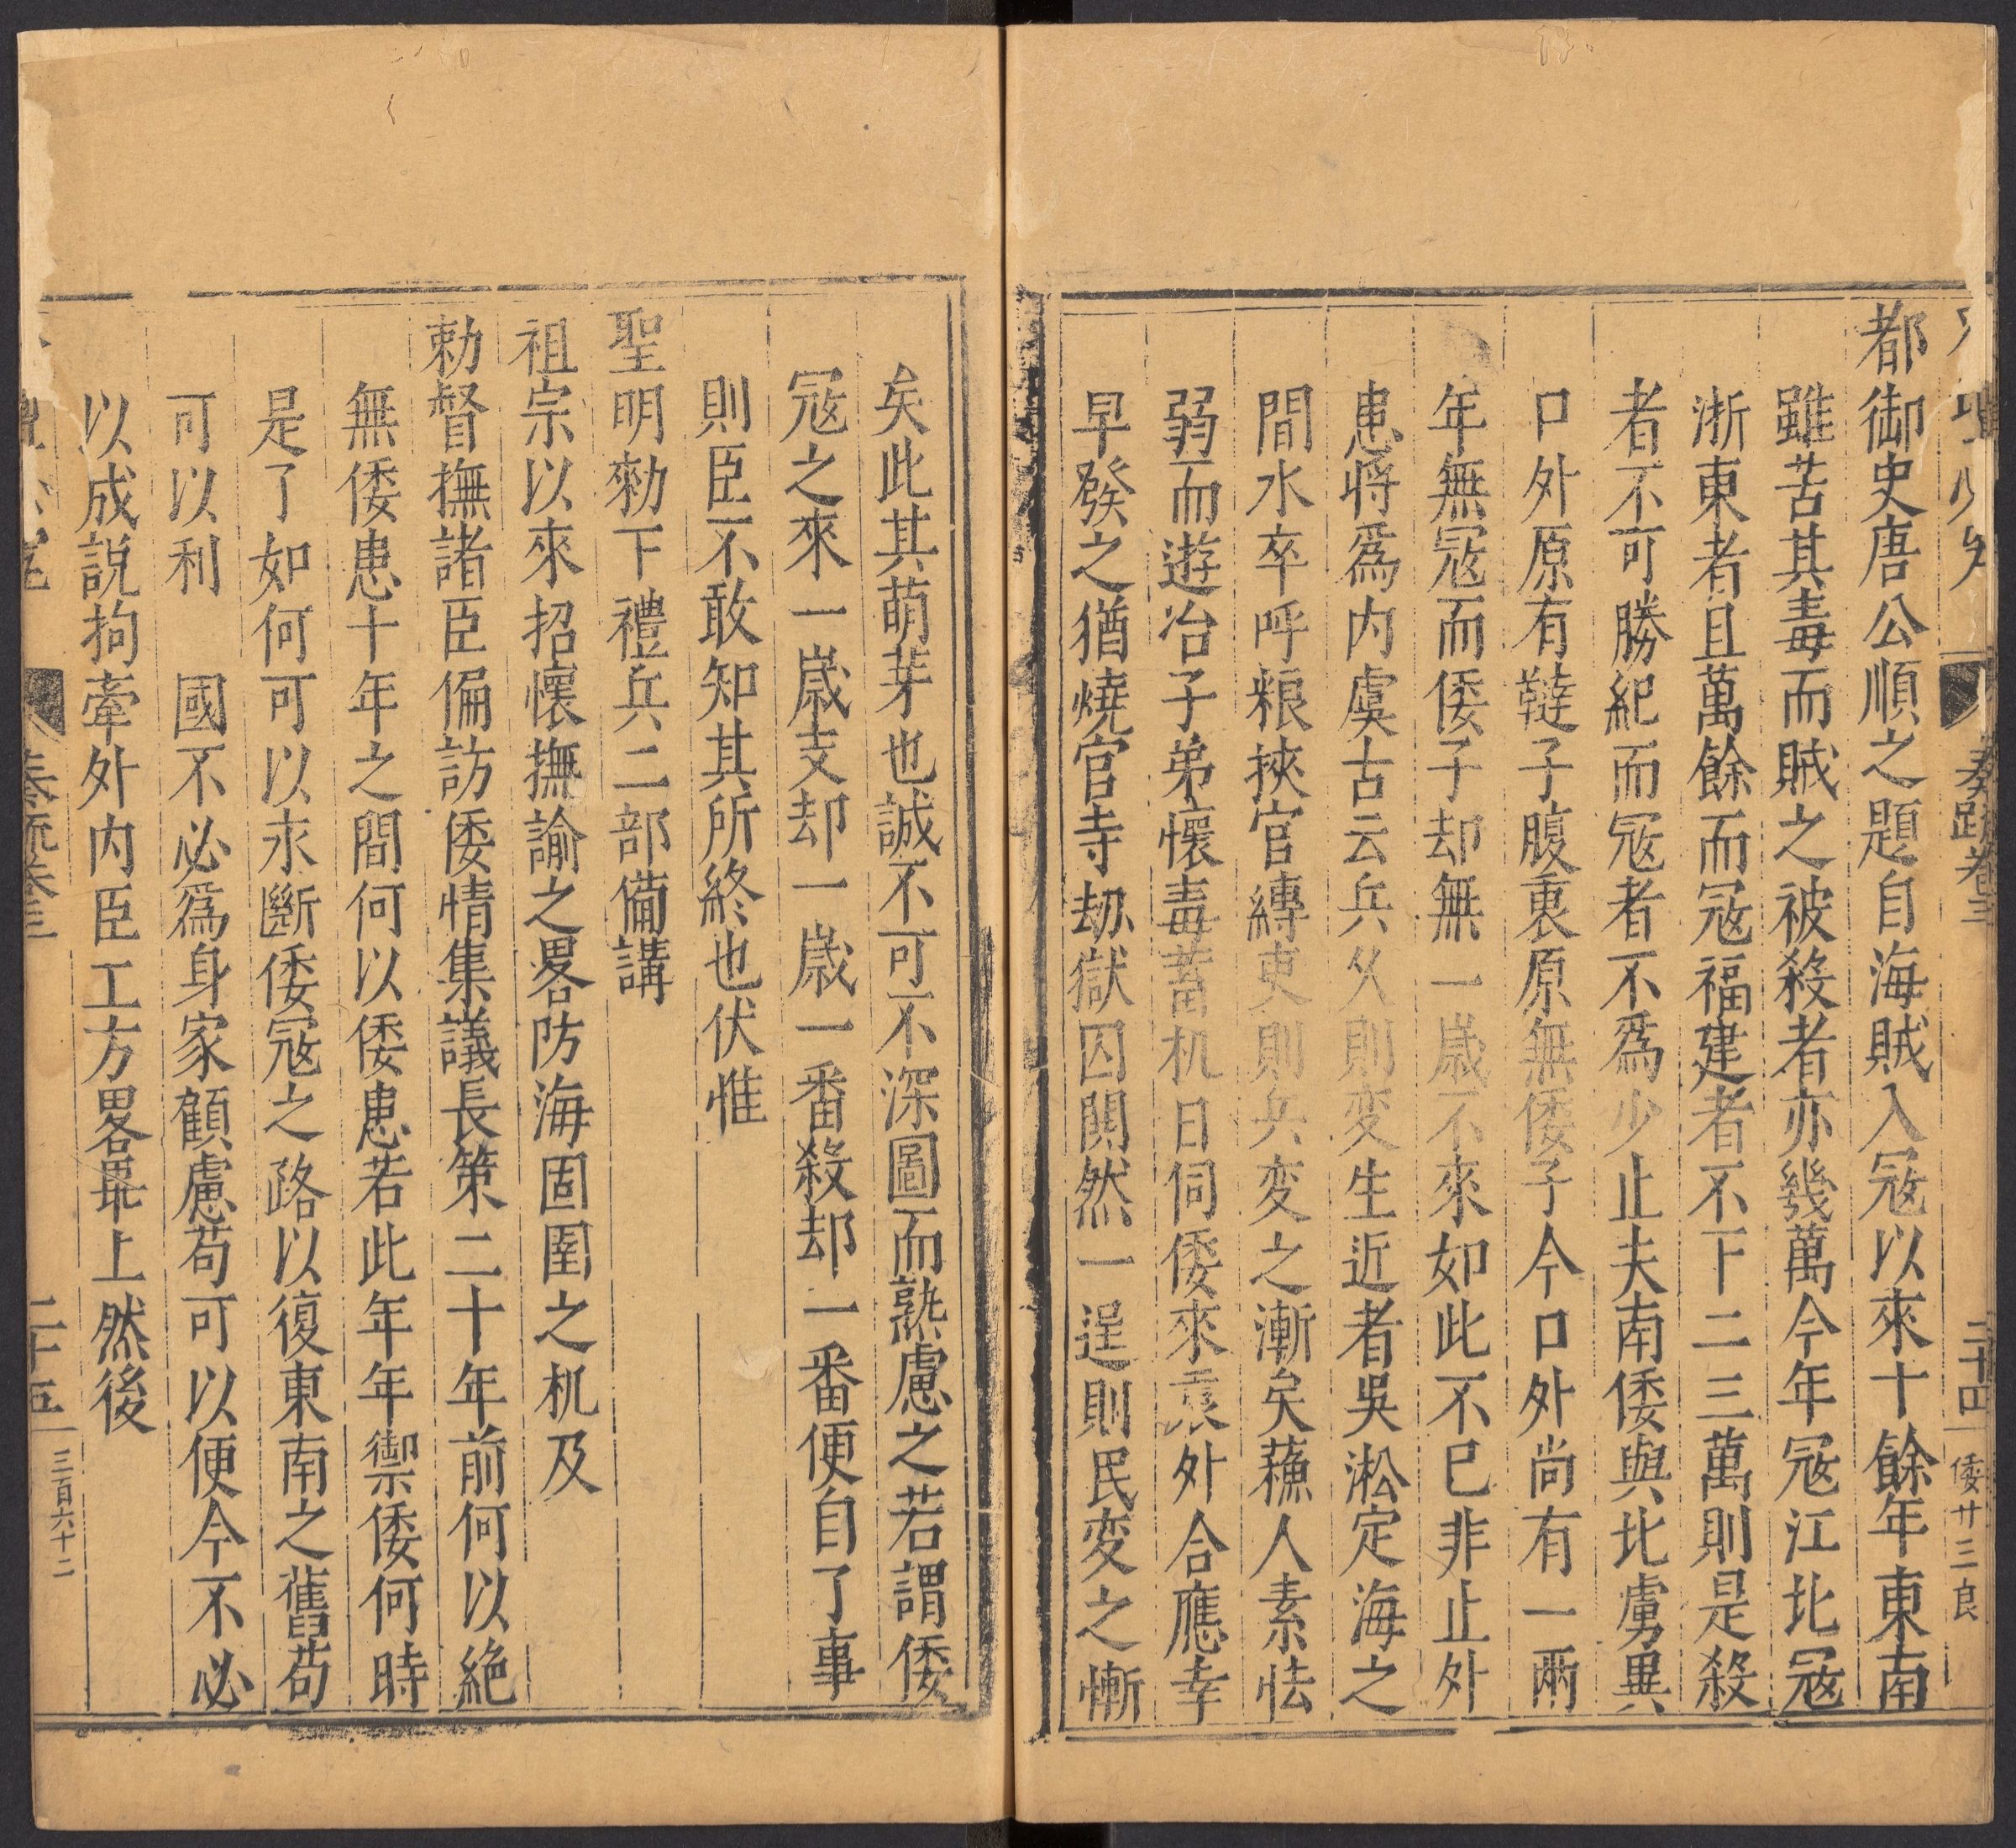 奏疏卷三 二十四 倭廿三良
都御史唐公順之題自海賊入冦以來十餘年東南
雖苦其毒而賊之被殺者亦幾萬今年冦江北冦
浙東者且萬餘而冦福建者不下二三萬則是殺
者不可勝紀而冦者不爲少止夫南倭與北虜異
口外原有韃子腹裏原無倭子今口外尚有一兩
年無冦而倭子却無一嵗不來如此不已非止外
患將爲内虞古云兵乆則変生近者吳淞定海之
間水卒呼粮挾官縳吏則兵変之漸矣蘓人素怯
弱而遊冶子弟懷毒蓄机日伺倭來裏外合應幸
早發之猶燒官寺刼獄囚鬨然一逞則民変之慚
矣此其萌芽也誠不可不深圖而熟慮之若謂倭
冦之來一嵗支却一嵗一番殺却一番便自了事
則臣不敢知其所終也伏惟
聖明勑下禮兵二部備講
祖宗以來招懷撫諭之畧防海固圉之机及
勅督撫諸臣偏訪倭情集議長策二十年前何以絶
無倭患十年之間何以倭患若此年年禦倭何時
是了如何可以永斷倭冦之路以復東南之舊苟
可以利 國不必爲身家顧慮苟可以便今不必
以成說拘牽外内臣工方畧畢上然後
奏疏卷三 二十五 三百六十二